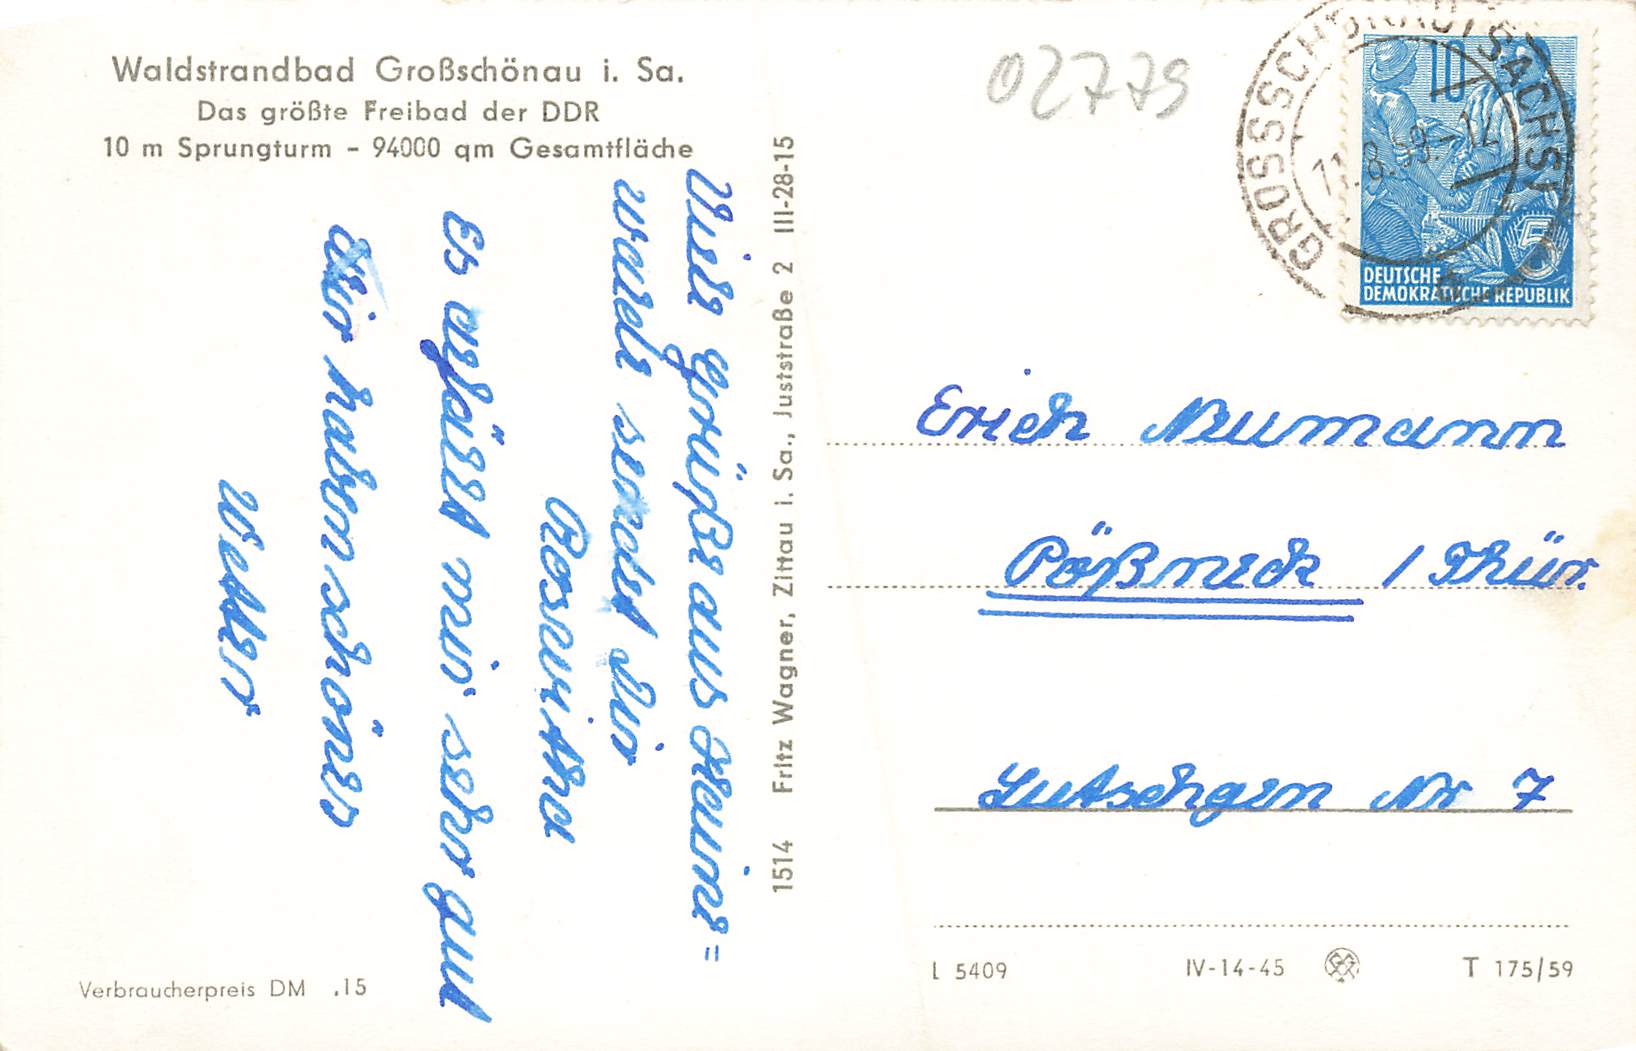 Waldstrandbad Großschönau i. Sa.
Das größte Freibad der DDR
10 m Sprungturm – 94000 qm Gesamtfläche
Viele Grüße aus Hain=
walde sendet Dir
Roswitha
Es gefällt mir sehr gut
Wir haben schönes
Wetter
Verbraucherpreis DM .15
1514 Fritz Wagner, Zittau i. Sa., Juststraße 2 III-28-15
02779
10
5
DEUTSCHE
DEMOKRATISCHE REPUBLIK
Erich Neumann
Pößneck / Thür.
Jutschgen Nr 7
L 5409 IV-14-45 T 175/59